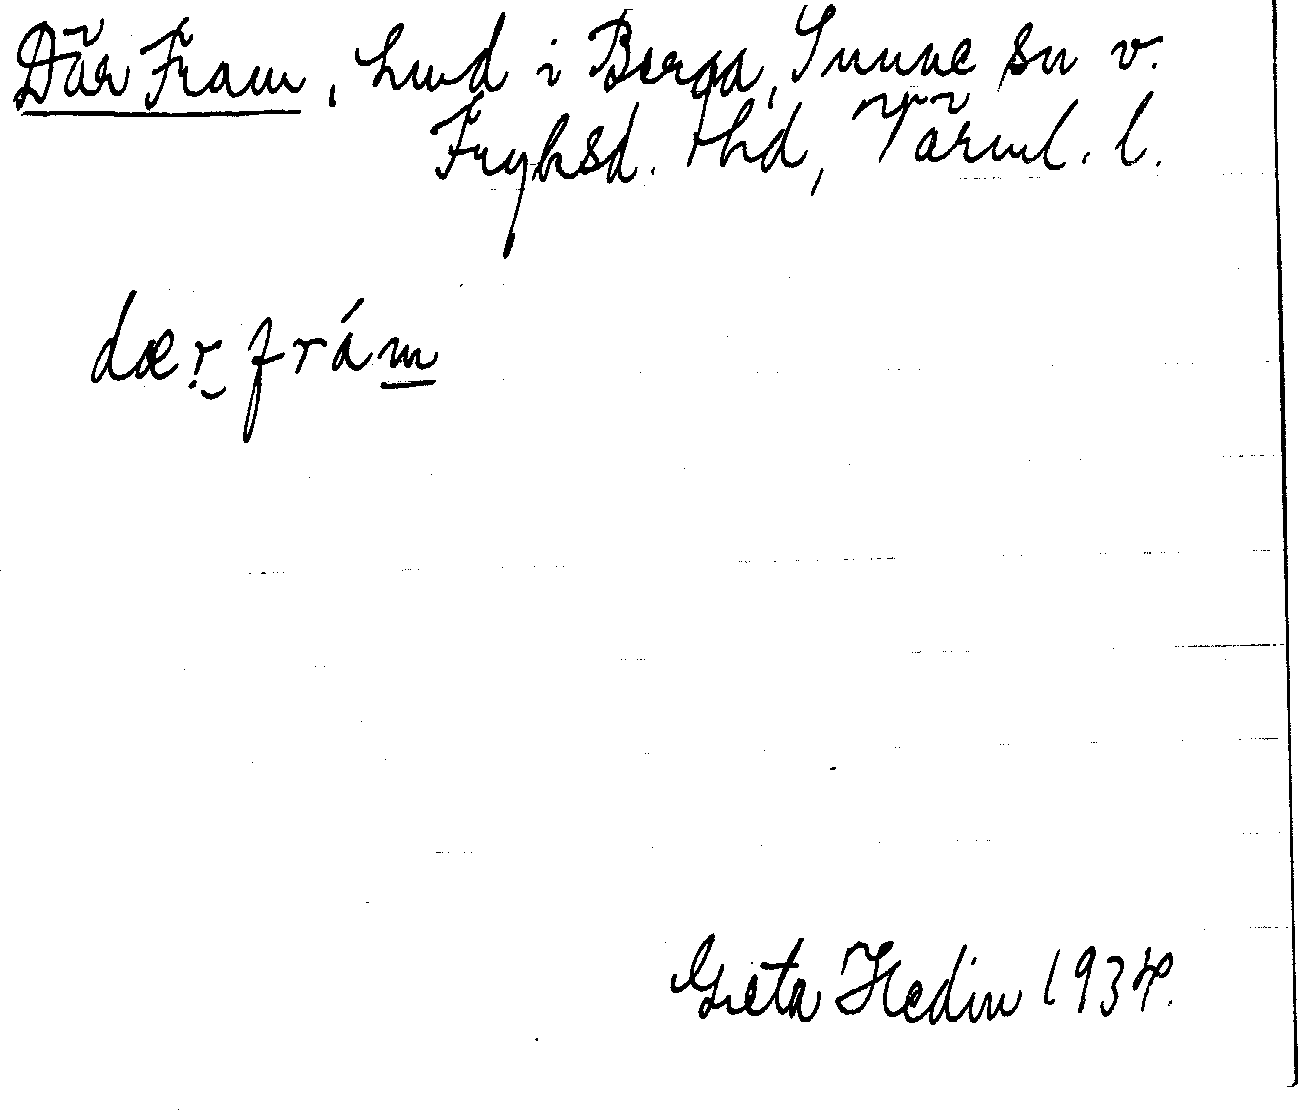 Där Fram, hmd i Berga, Sunne sn v.
Fryksd. thd, Värml. l.
dær̤ frám̲
Greta Hedin 1934.